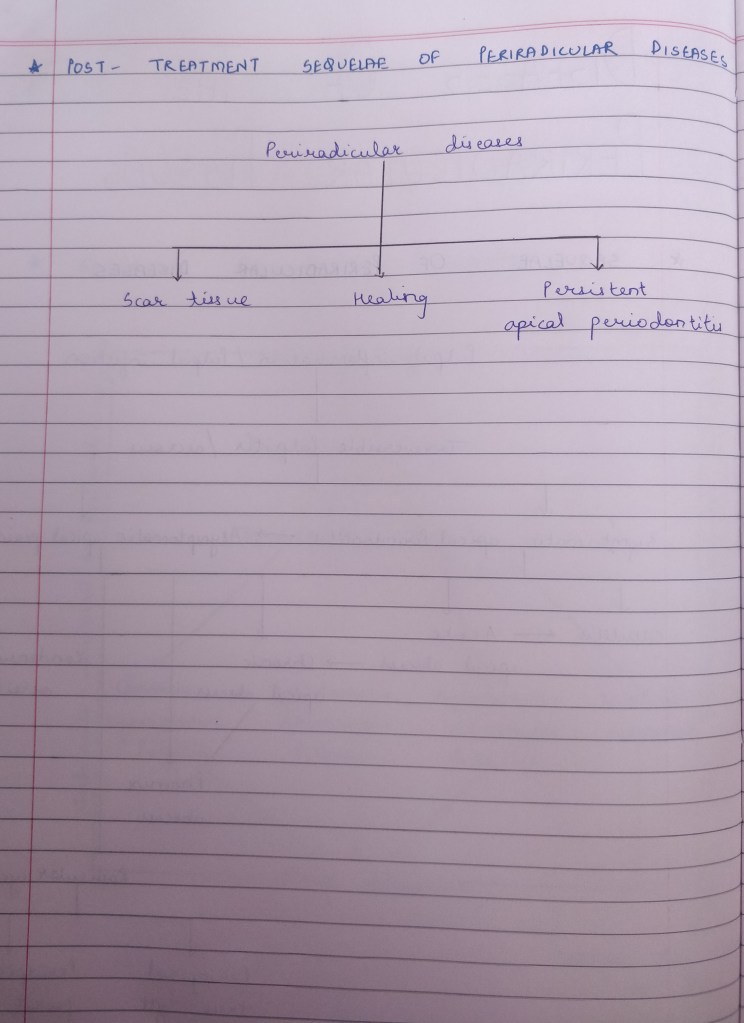 * POST- TREATMENT SEQUELAE OF PERIRADICULAR DISEASES
Periradicular diseases
Scar tissue
Healing
Persistent
apical periodontitis